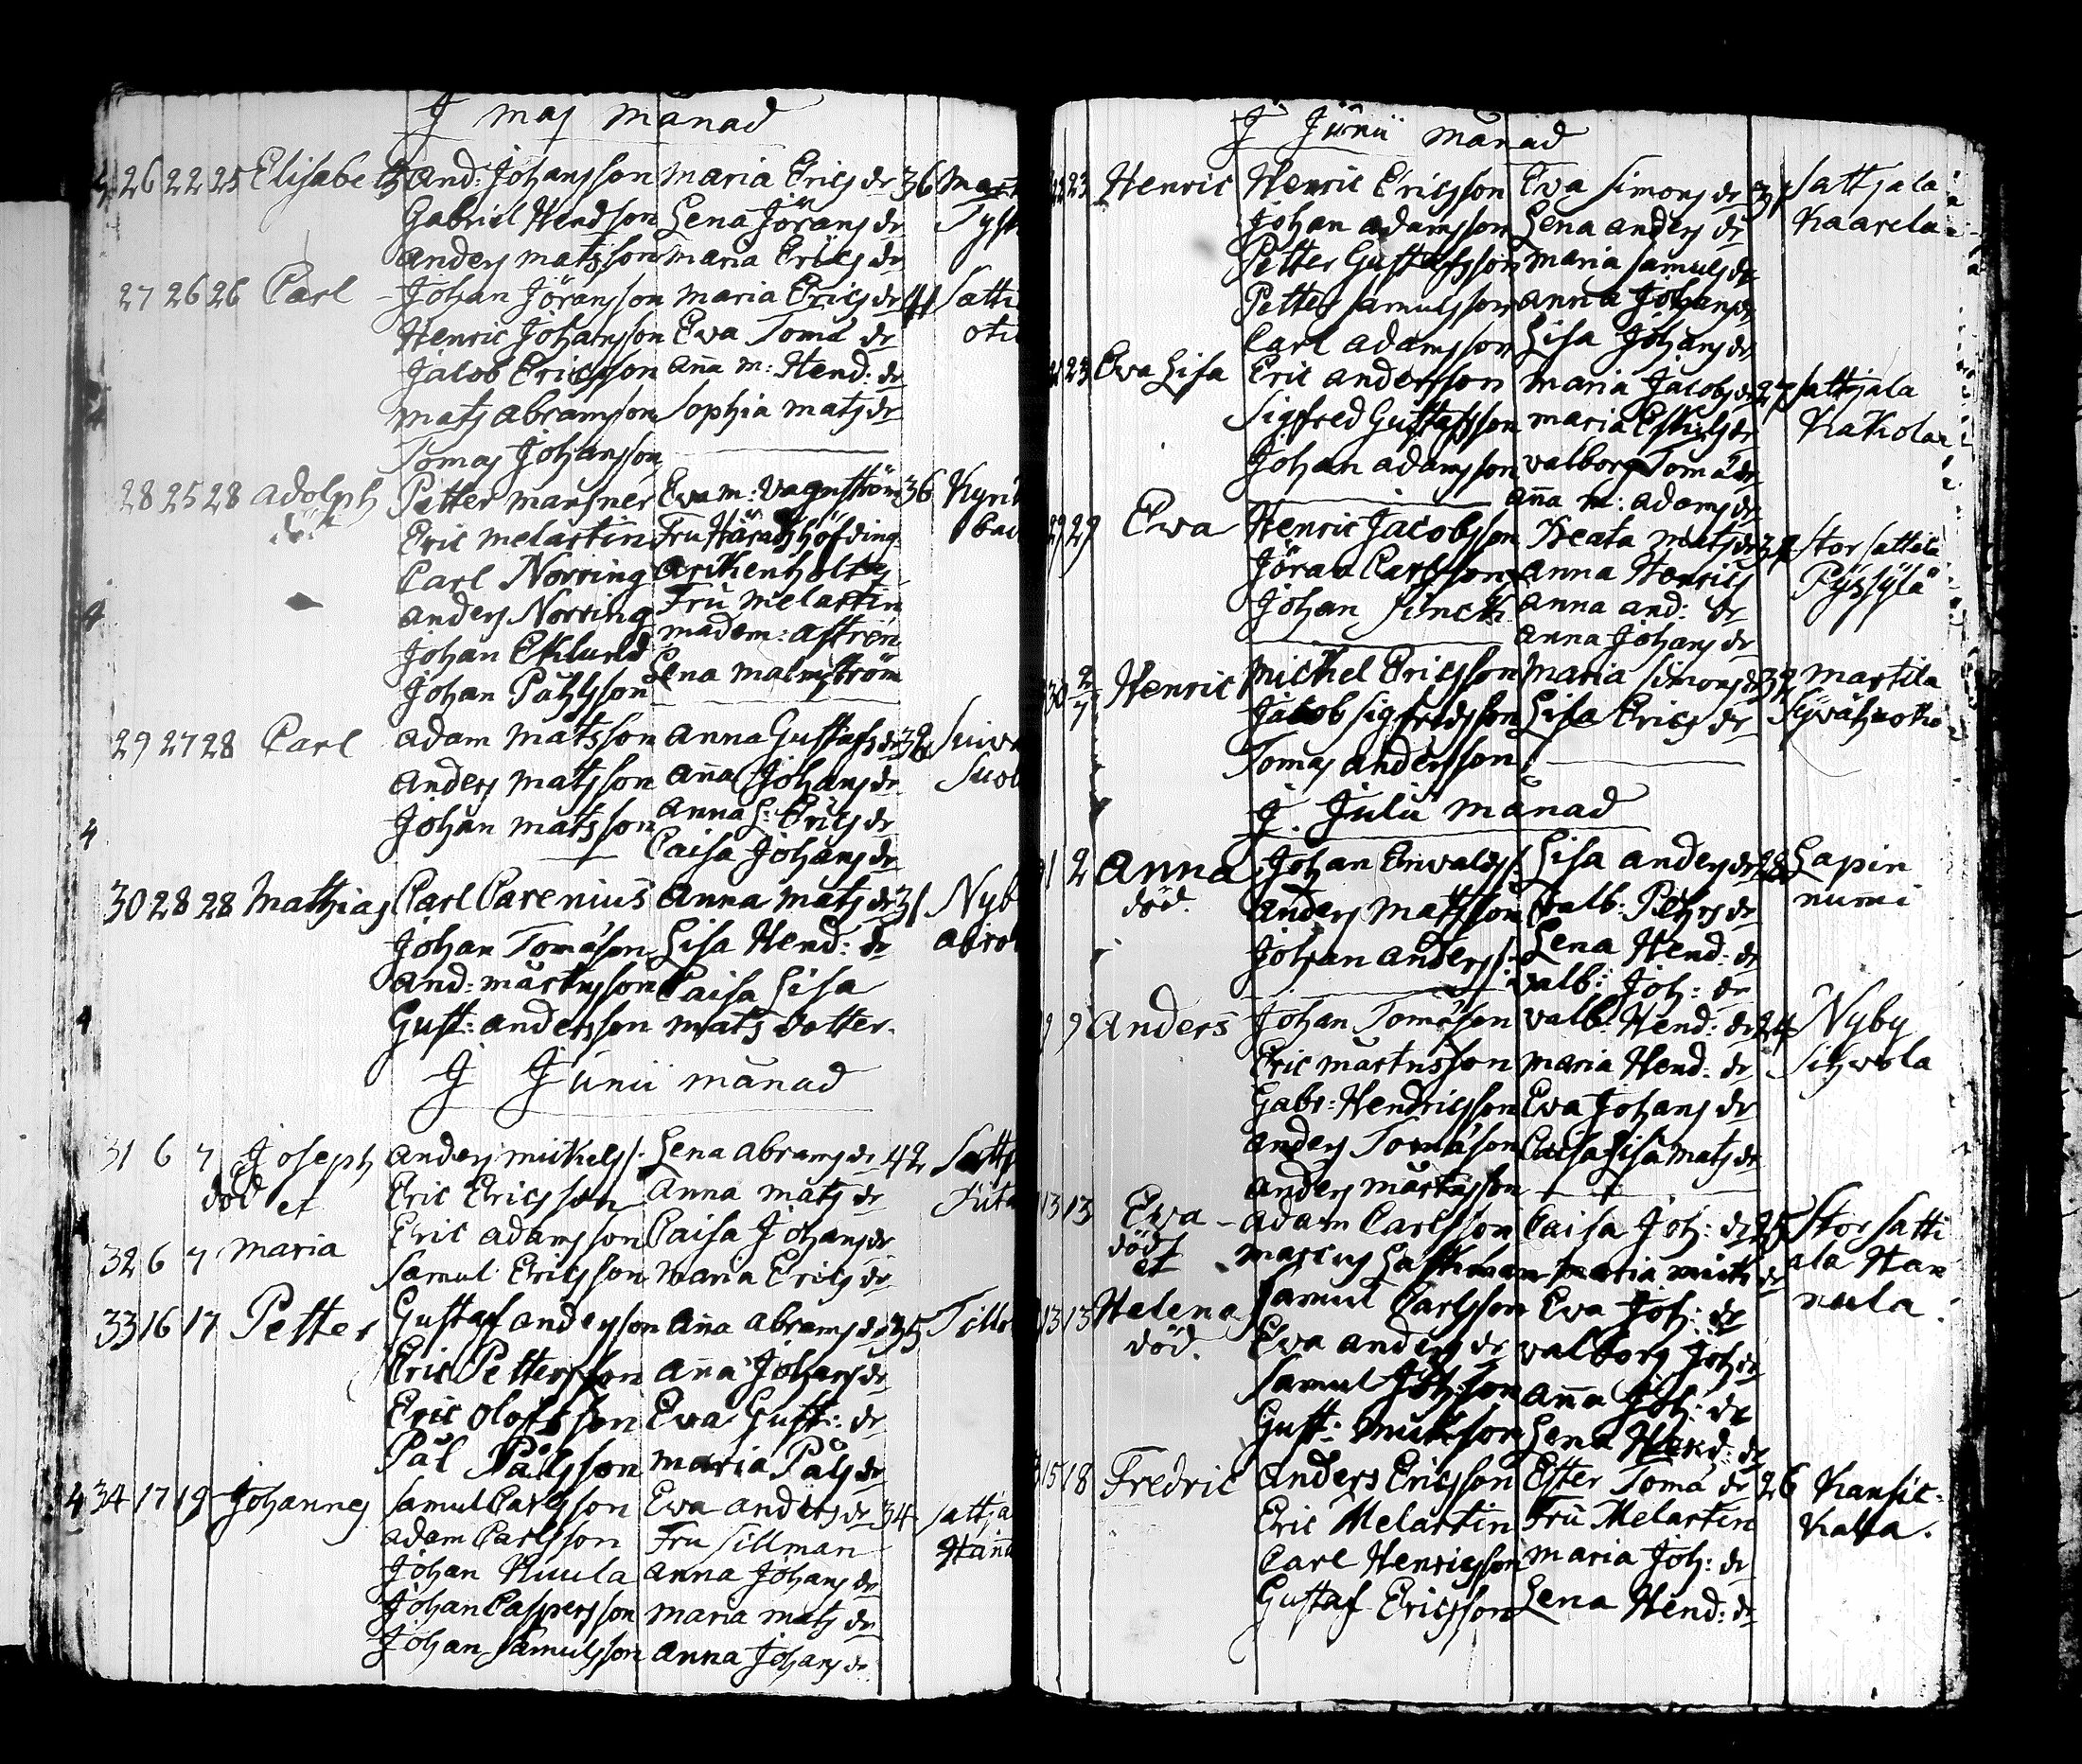 J maj månad
26 22 25 Elisabeth And: Johansson Maria Erics dr 36
Gabriel Hendson Lena Jörans dr
Anders Matsson Maria Erics dr
27 26 26 Carl Johan Jöransson Maria Erics dr 41 Satti
Henric Johansson Ewa Toma dr
Jacob Ericsson Aña M: Hend: dr
Mats Abramsson Sophia Mats dr
Tomas Johansson
28 25 28 Adolph Petter Ewa M: 36
Eric Melartin Fru Häradshöfding
Carl Norring
Anders Norring Fru Melartin
Johan Eklund Madem: Astren
Johan Påhlsson Lena Malmström
29 27 28 Carl Adam Matsson Anna Gustafs dr
Anders Matsson Aña Johans dr
Johan Matsson Anna L: Erics dr
Caisa Johans dr
30 28 28 Mathias Carl Carenius Anna Mats dr 31 Nyb
Johan Tomason Lisa Hend: dr
And: Mårtensson Caisa Lisa
Gust: Andersson Mats dotter.
J Junii månad
31 6 7 Joseph Anders Mickels s. Lena Abrams dr 42
död et Eric Ericsson Anna Mats dr
Eric Adamsson Caisa Johans dr
32 6 7 Maria Samul Ericsson Maria Erics dr
33 16 17 Petter Gustaf Andersson Aña Abrams dr 35
Eric Pettersson Aña Johans dr
Eric Olofsson Ewa Gust: dr
Pål Pålsson Maria Påls dr
34 17 19 Johannes Samul Carlsson Ewa Anders dr 34 Sattja
Adam Carlsson Fru Sillman
Johan Kuula Anna Johans dr
Johan Caspersson Maria Mats dr
Johan Samulsson Anna Johans dr
J Junii månad
23 Henric Henric Ericsson Ewa Simons dr Sattjala
Johan Adamsson Lena Anders dr Kaarela
Petter Gustafsson Maria Samuls dr
Petter Samulsson Anna Johans dr
Carl Adamsson Lisa Johans dr
23 Ewa Lisa Eric Andersson Maria Jacobs dr 27 Sattjala
Sigfred Gustafsson Maria Eskils dr Kakola
Johan Adamsson Valborg Toma dr
Aña M: Adams dr
29 29 Ewa Henric Jacobsson Beata Mats dr Stor Sattiala
Jöran Carlsson Anna Henrics Pyssylä
Johan Anna And: dr
Anna Johans dr
30 2/7 Henric Michel Ericsson Maria Simons dr Martila
Jacob Sigfredsson Lisa Erics dr
Tomas Andersson
J. Julii månad
2 Anna Johan Erwalds s. Lisa Anders dr 28 Lapin
död. Anders Matsson Valb: Pehrs dr nummi
Johan Anders s. Lena Hend: dr
Valb: Joh: dr
9 9 Anders Johan Tomason Valb: Hend: dr 24 Nyby
Eric Mårtensson Maria Hend: dr Sihvola
Gabr: Hendricsson Ewa Johans dr
Anders Tomason Caisa Lisa Mats dr
Anders Mårtensson
13 13 Ewa Adam Carlsson Caisa Joh: dr 25 Stor Satti
död et Marcus Maria dr ala Han
13 13 Helena Samul Carlsson Ewa Joh: dr nula
död. Ewa Anders dr Valborg Joh dr
Samul Johsson Aña Joh: dr
Gust: Lena Hend: dr
15 18 Fredric Anders Ericsson Ester Toma dr 26
Eric Melartin Fru Melartin
Carl Henricsson Maria Joh: dr
Gustaf Ericsson Lena Hend: dr